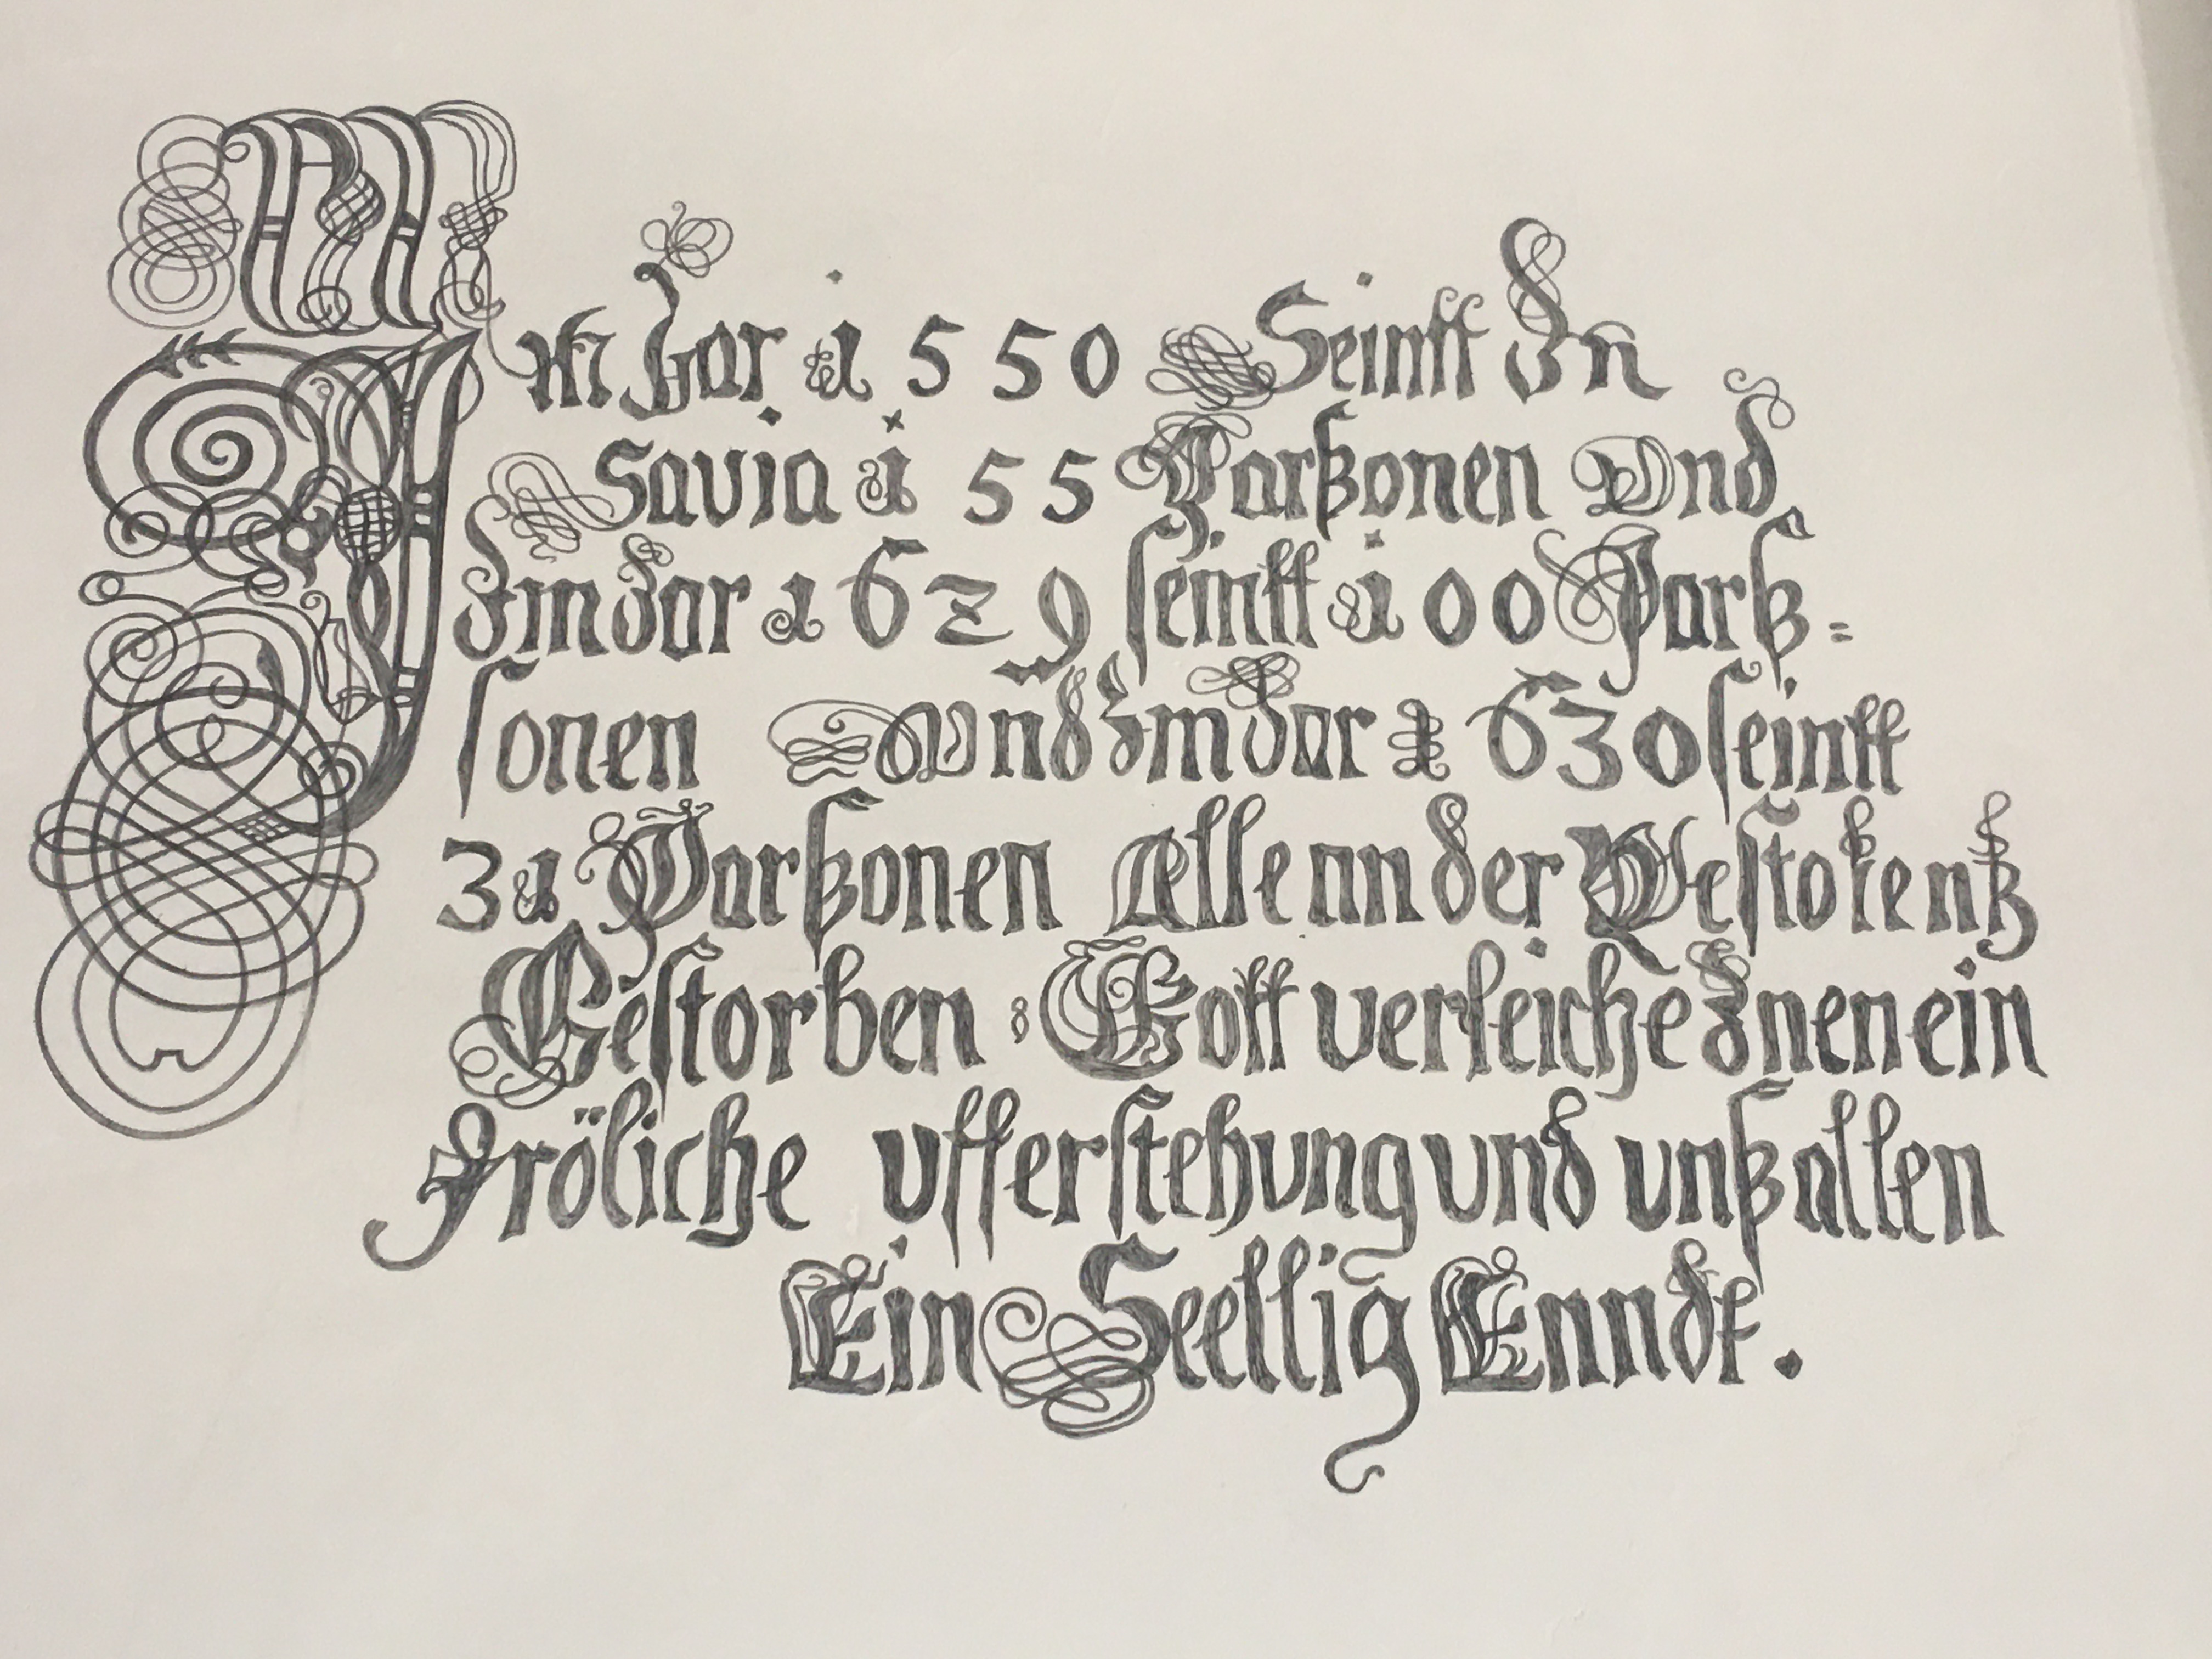 Im Jar 1550 Seintt In
Savia 155 Parßonen Und
Im Jar 1629 seintt 100 Parß=
sonen Und Im Jar 1630 seintt
31 Parßonen Alle an der Pestolentz
Gestorben : Gott verleiche Inen ein
Fröliche ufferstehung und unß allen
Ein Seellig Ennde.